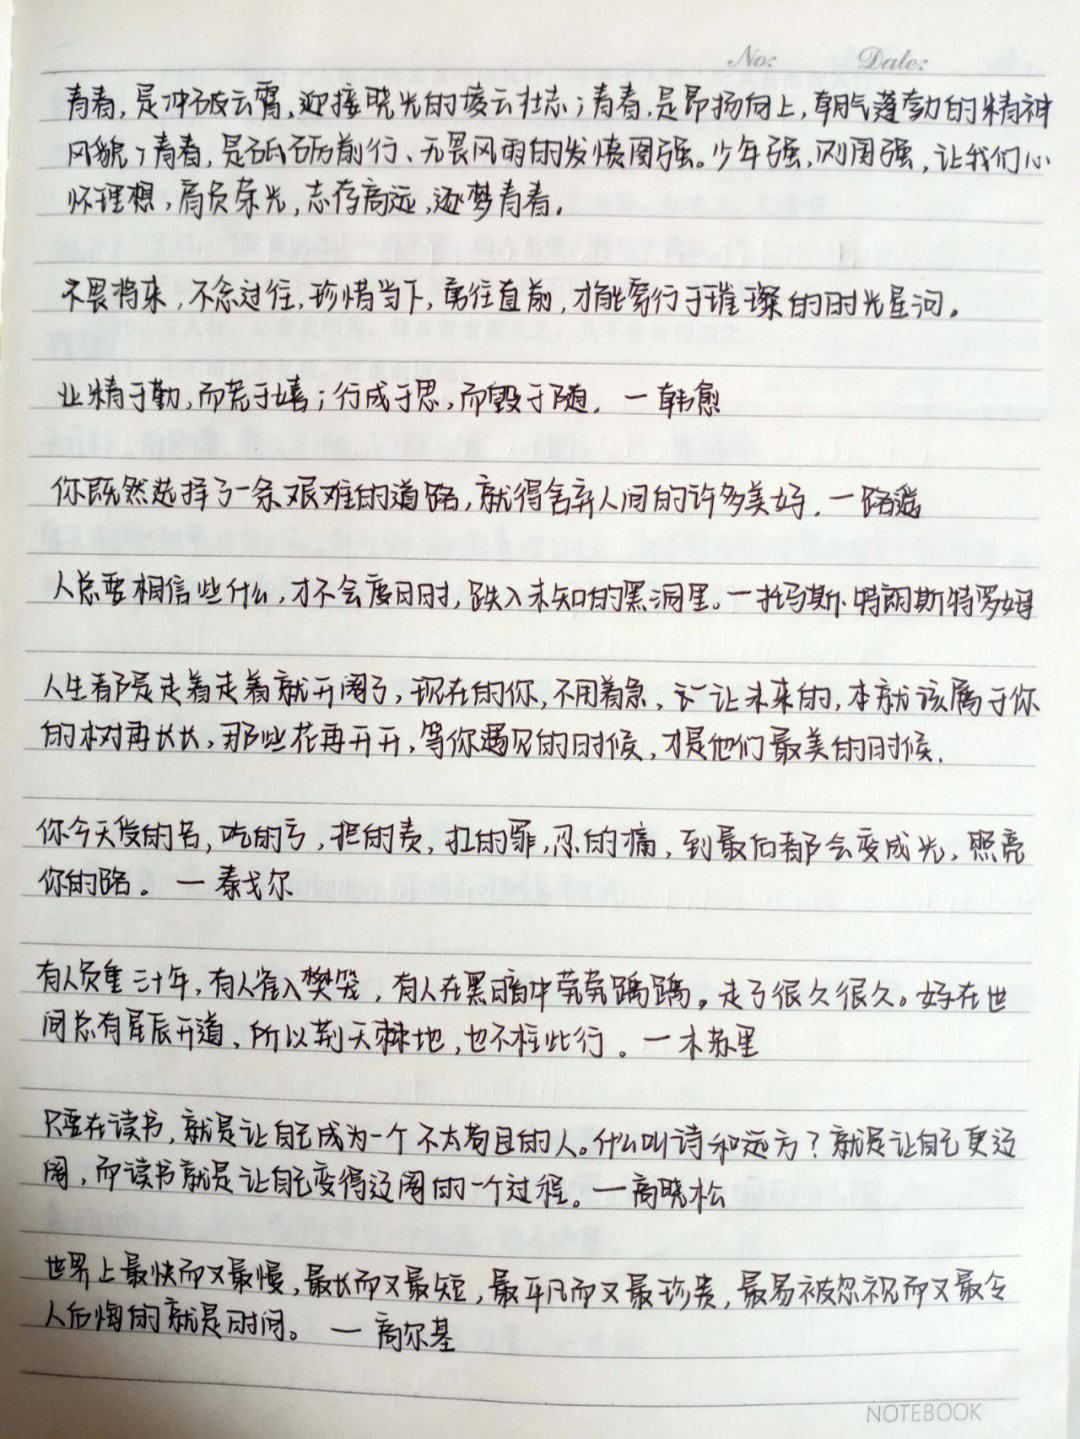 No: Date:
青春,是冲破云霄、迎接晓光的凌云壮志;青春,是昂扬向上,朝气蓬勃的精神
风貌;青春,是砥砺前行、无畏风雨的发愤图强。少年强,则国强,让我们心
怀理想,肩负荣光,志存高远,逐梦青春.
不畏将来,不念过往,珍惜当下,勇往直前,才能穿行于璀璨的时光星河。
业精于勤,而荒于嬉;行成于思,而毁于随. 一韩愈
你既然选择了一条艰难的道路,就得舍弃人间的许多美好. 一路遥
人总要相信些什么,才不会度日时,跌入未知的黑洞里。一托玛斯·特朗斯特罗姆
人生都是走着走着就开阔了,现在的你,不用着急,让未来的,本就该属于你
的树再长长,那些花再开开,等你遇见的时候,才是他们最美的时候.
你今天受的苦,吃的亏,担的责,扛的罪,忍的痛,到最后都会变成光,照亮
你的路。 一 泰戈尔
有人负重三十年,有人雀入樊笼,有人在黑暗中茕茕踽踽。走了很久很久。好在世
间总有星辰开道,所以荆天棘地,也不枉此行。 一木苏里
只要在读书,就是让自己成为一个不太苟且的人。什么叫诗和远方?就是让自己更辽
阔,而读书就是让自己变得辽阔的一个过程。一高晓松
世界上最快而又最慢,最长而又最短,最平凡而又最珍贵,最易被忽视而又最令
人后悔的就是时间。 一 高尔基
NOTEBOOK